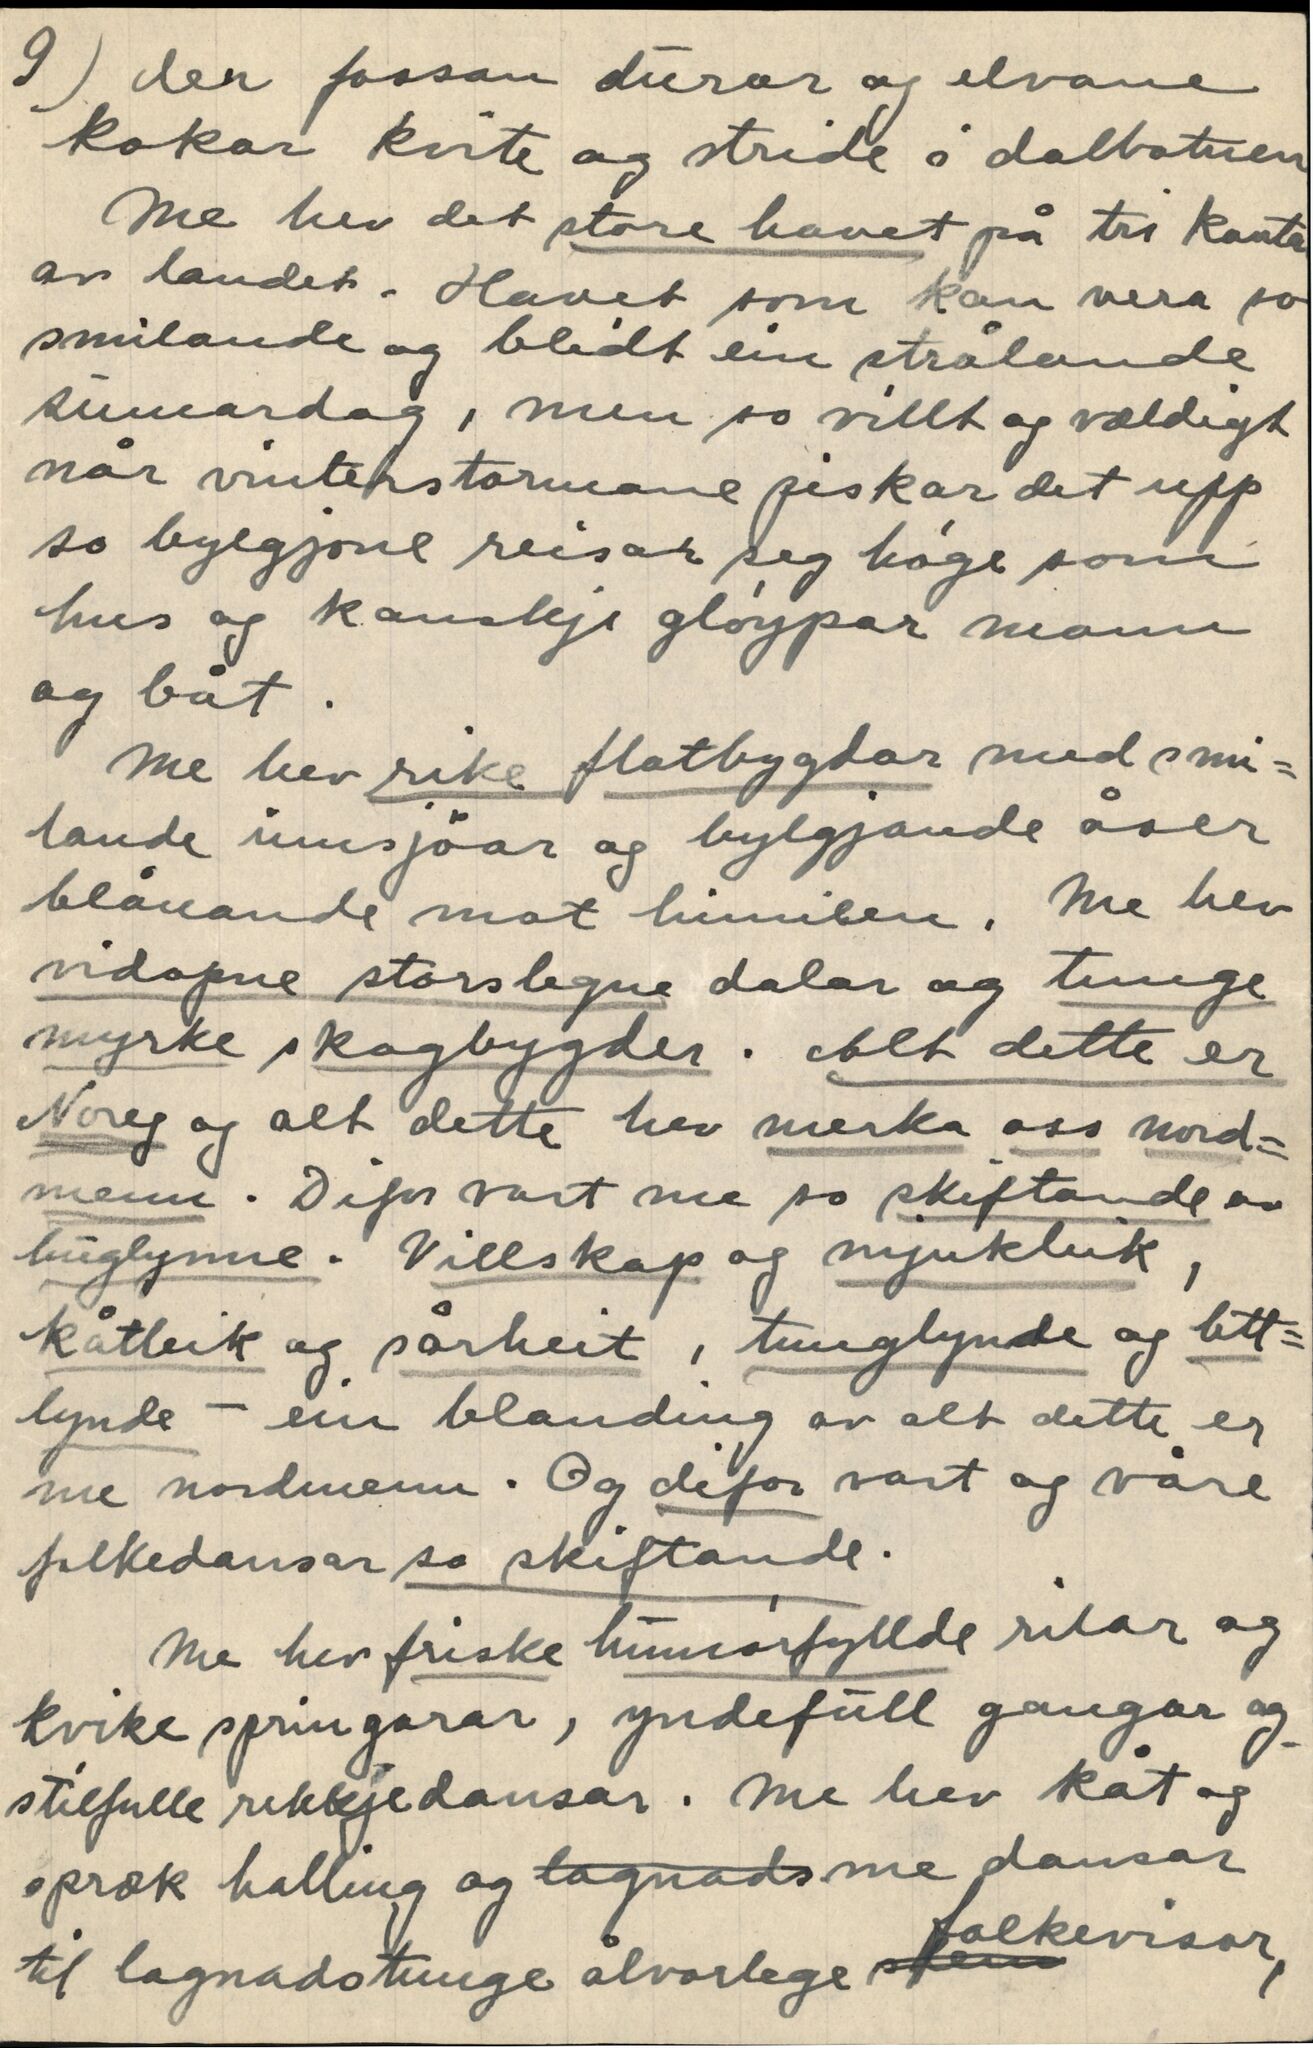 9) der fossan durar og elvane
kokar kvite og stride i dalbotnen
Me hev det store havet på tri kanta
av landet. Havet som kan vera so
smilande og blidt ein strålande
sumardag, men so villt og vældigt
når vinterstormane piskar det upp
so bylgjone reisar seg høge som
hus og kanskje gløypar mann
og båt.
Me hev rike flatbygdar med smi=
lande innsjöar og bylgjande åser
blånande mot himilen. Me hev
vidopne storslegne dalar og tunge
myrke skogbygder. Alt dette er
Noreg og alt dette hev merka oss nord=
menn. Difor vart me so skiftande av
huglynne. Villskap og mjukleik,
kåtleik og sårheit, tunglynde og lett=
lynde - ein blanding av alt dette er
me nordmenn. Og difor vart og våre
folkedansar so skiftande.
Me hev friske humørfyllde rilar og
kvike springarar, yndefull gangar og
stilfulle rekkjedansar. Me hev kåt og
spræk halling og lagnads me dansar
til lagnadstunge ålvorlege folkevisor,